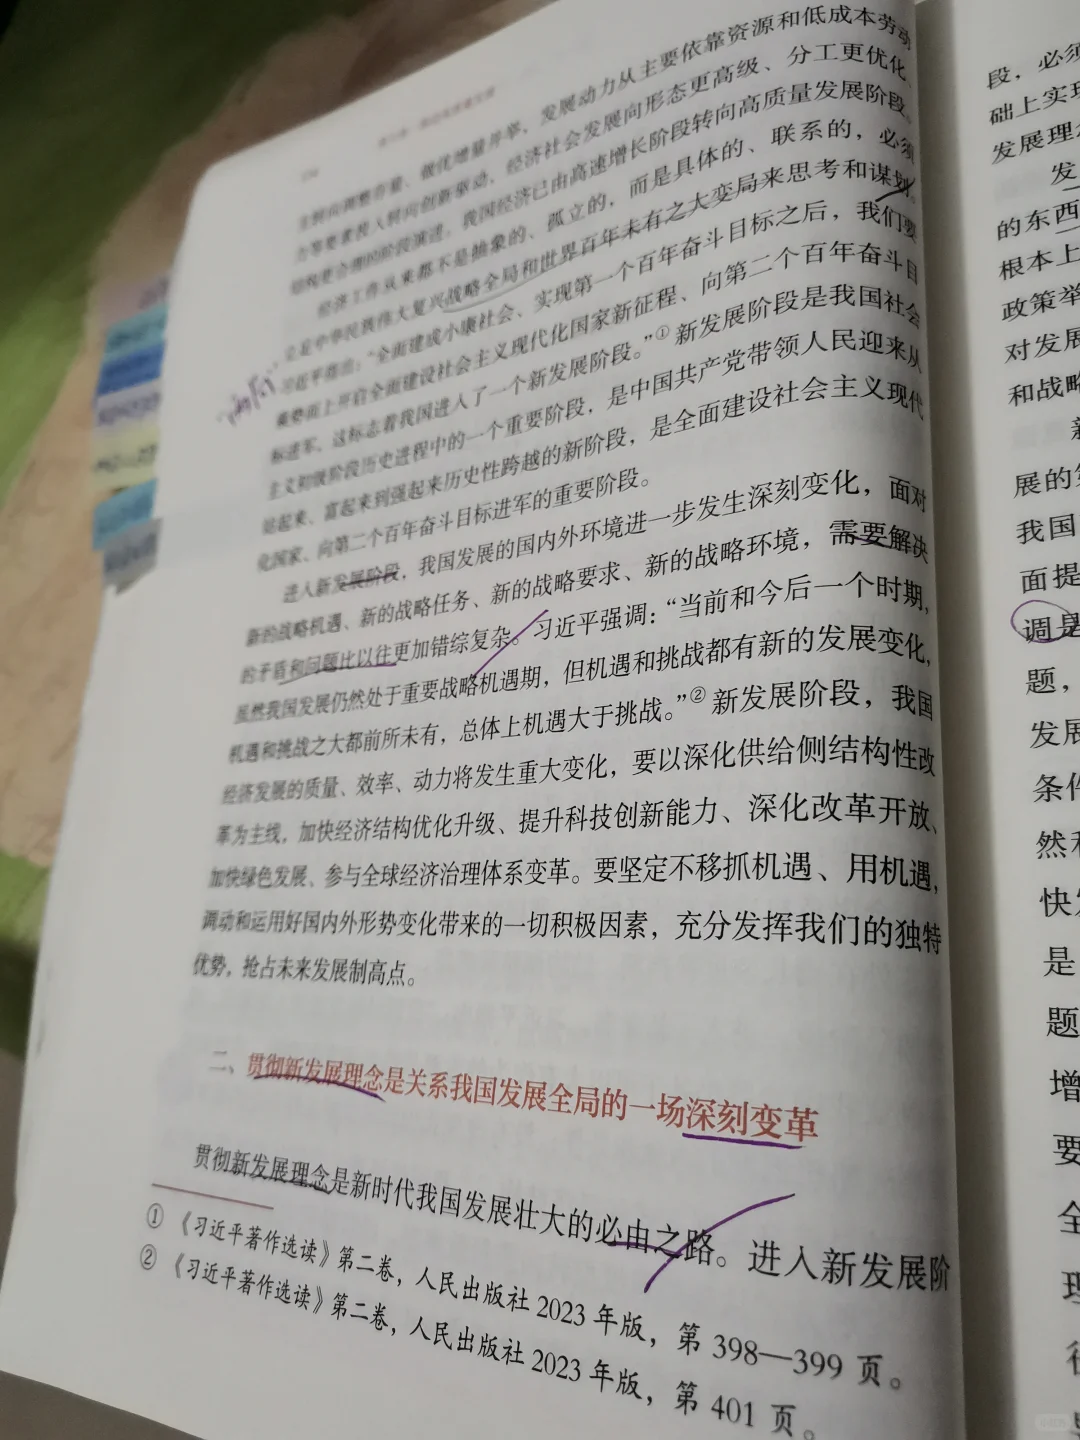 主转向调整存量、做优增量并举，发展动力从主要依靠资源和低成本劳动
力等要素投入转向创新驱动，经济社会发展向形态更高级、分工更优化、
结构更合理的阶段演进，我国经济已由高速增长阶段转向高质量发展阶段。
经济工作从来都不是抽象的、孤立的，而是具体的、联系的，必须
立足中华民族伟大复兴战略全局和世界百年未有之大变局来思考和谋划。
习近平指出：“全面建成小康社会、实现第一个百年奋斗目标之后，我们要
乘势而上开启全面建设社会主义现代化国家新征程、向第二个百年奋斗目
标进军，这标志着我国进入了一个新发展阶段。”①新发展阶段是我国社会
主义初级阶段历史进程中的一个重要阶段，是中国共产党带领人民迎来从
站起来、富起来到强起来历史性跨越的新阶段，是全面建设社会主义现代
化国家、向第二个百年奋斗目标进军的重要阶段。
进入新发展阶段，我国发展的国内外环境进一步发生深刻变化，面对
新的战略机遇、新的战略任务、新的战略要求、新的战略环境，需要解决
的矛盾和问题比以往更加错综复杂。习近平强调：“当前和今后一个时期，
虽然我国发展仍然处于重要战略机遇期，但机遇和挑战都有新的发展变化，
机遇和挑战之大都前所未有，总体上机遇大于挑战。”②新发展阶段，我国
经济发展的质量、效率、动力将发生重大变化，要以深化供给侧结构性改
革为主线，加快经济结构优化升级、提升科技创新能力、深化改革开放、
加快绿色发展、参与全球经济治理体系变革。要坚定不移抓机遇、用机遇，
调动和运用好国内外形势变化带来的一切积极因素，充分发挥我们的独特
优势，抢占未来发展制高点。
二、贯彻新发展理念是关系我国发展全局的一场深刻变革
贯彻新发展理念是新时代我国发展壮大的必由之路。进入新发展阶
①《习近平著作选读》第二卷，人民出版社 2023 年版，第 398—399 页。
②《习近平著作选读》第二卷，人民出版社 2023 年版，第 401 页。
段，必须
础上实现
发展理
发
的东西
根本上
政策举
对发展
和战略
新
展的
我国
面提
调是
题，
发展
条件
然
快
是
题
增
要
全
理